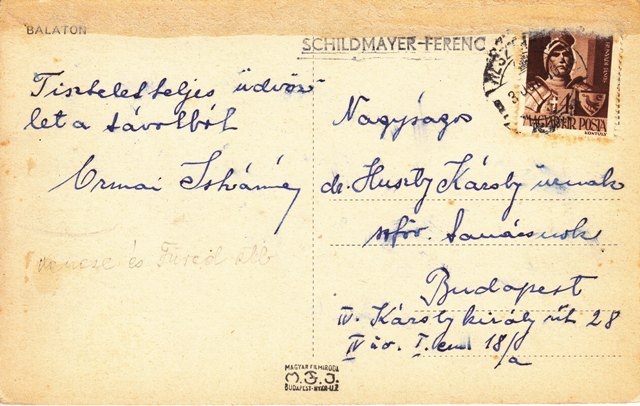 BALATON
SCHILDMAYER-FERENC
MAGYAR POSTA
Tiszteletteljes üdvöz
let a távolból
Ormai Istvánné
és Füred
Nagyságos
dr. Huszty Károly úrnak
szfőv. tanácsnok
Budapest
IV. Károly király út 28
IV. I. em 18/a
MAGYAR FILMIRODA
M.F.I.
BUDAPEST-NYOM-U.P.